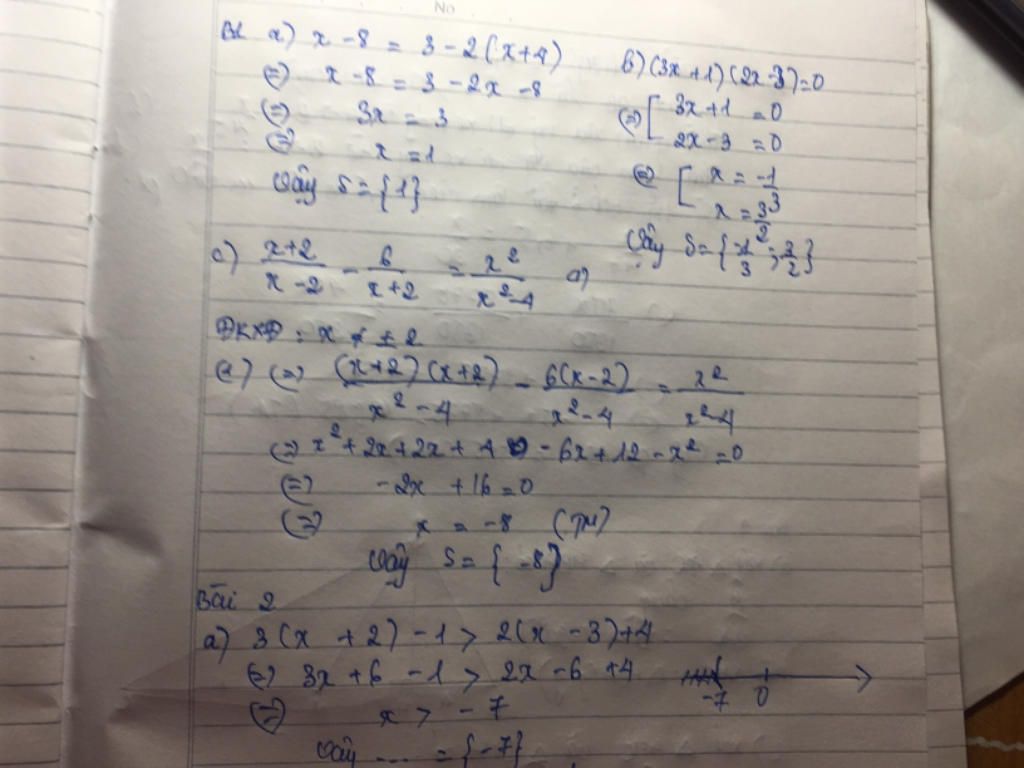 No
B1 a) x - 8 = 3 - 2(x+4)
(=) x - 8 = 3 - 2x - 8
(=) 3x = 3
(=) x = 1
Vậy S = {1}
b) (3x+1)(2x-3)=0
(=) [ 3x+1 = 0
2x-3 = 0
(=) [ x = -1/3
x = 3/2
Vậy S = {-1/3; 3/2}
c) x+2/x-2 - 6/x+2 = x²/x²-4
ĐKXĐ : x ≠ ± 2
(=) (x+2)(x+2)/x²-4 - 6(x-2)/x²-4 = x²/x²-4
(=) x² + 2x + 2x + 4 - 6x + 12 - x² = 0
(=) -2x + 16 = 0
(=) x = -8 (TM)
Vậy S = { -8}
Bài 2
a) 3(x + 2) - 1 > 2(x - 3) + 4
(=) 3x + 6 - 1 > 2x - 6 + 4
-7 0
(=) x > -7
Vậy .... = {-7}